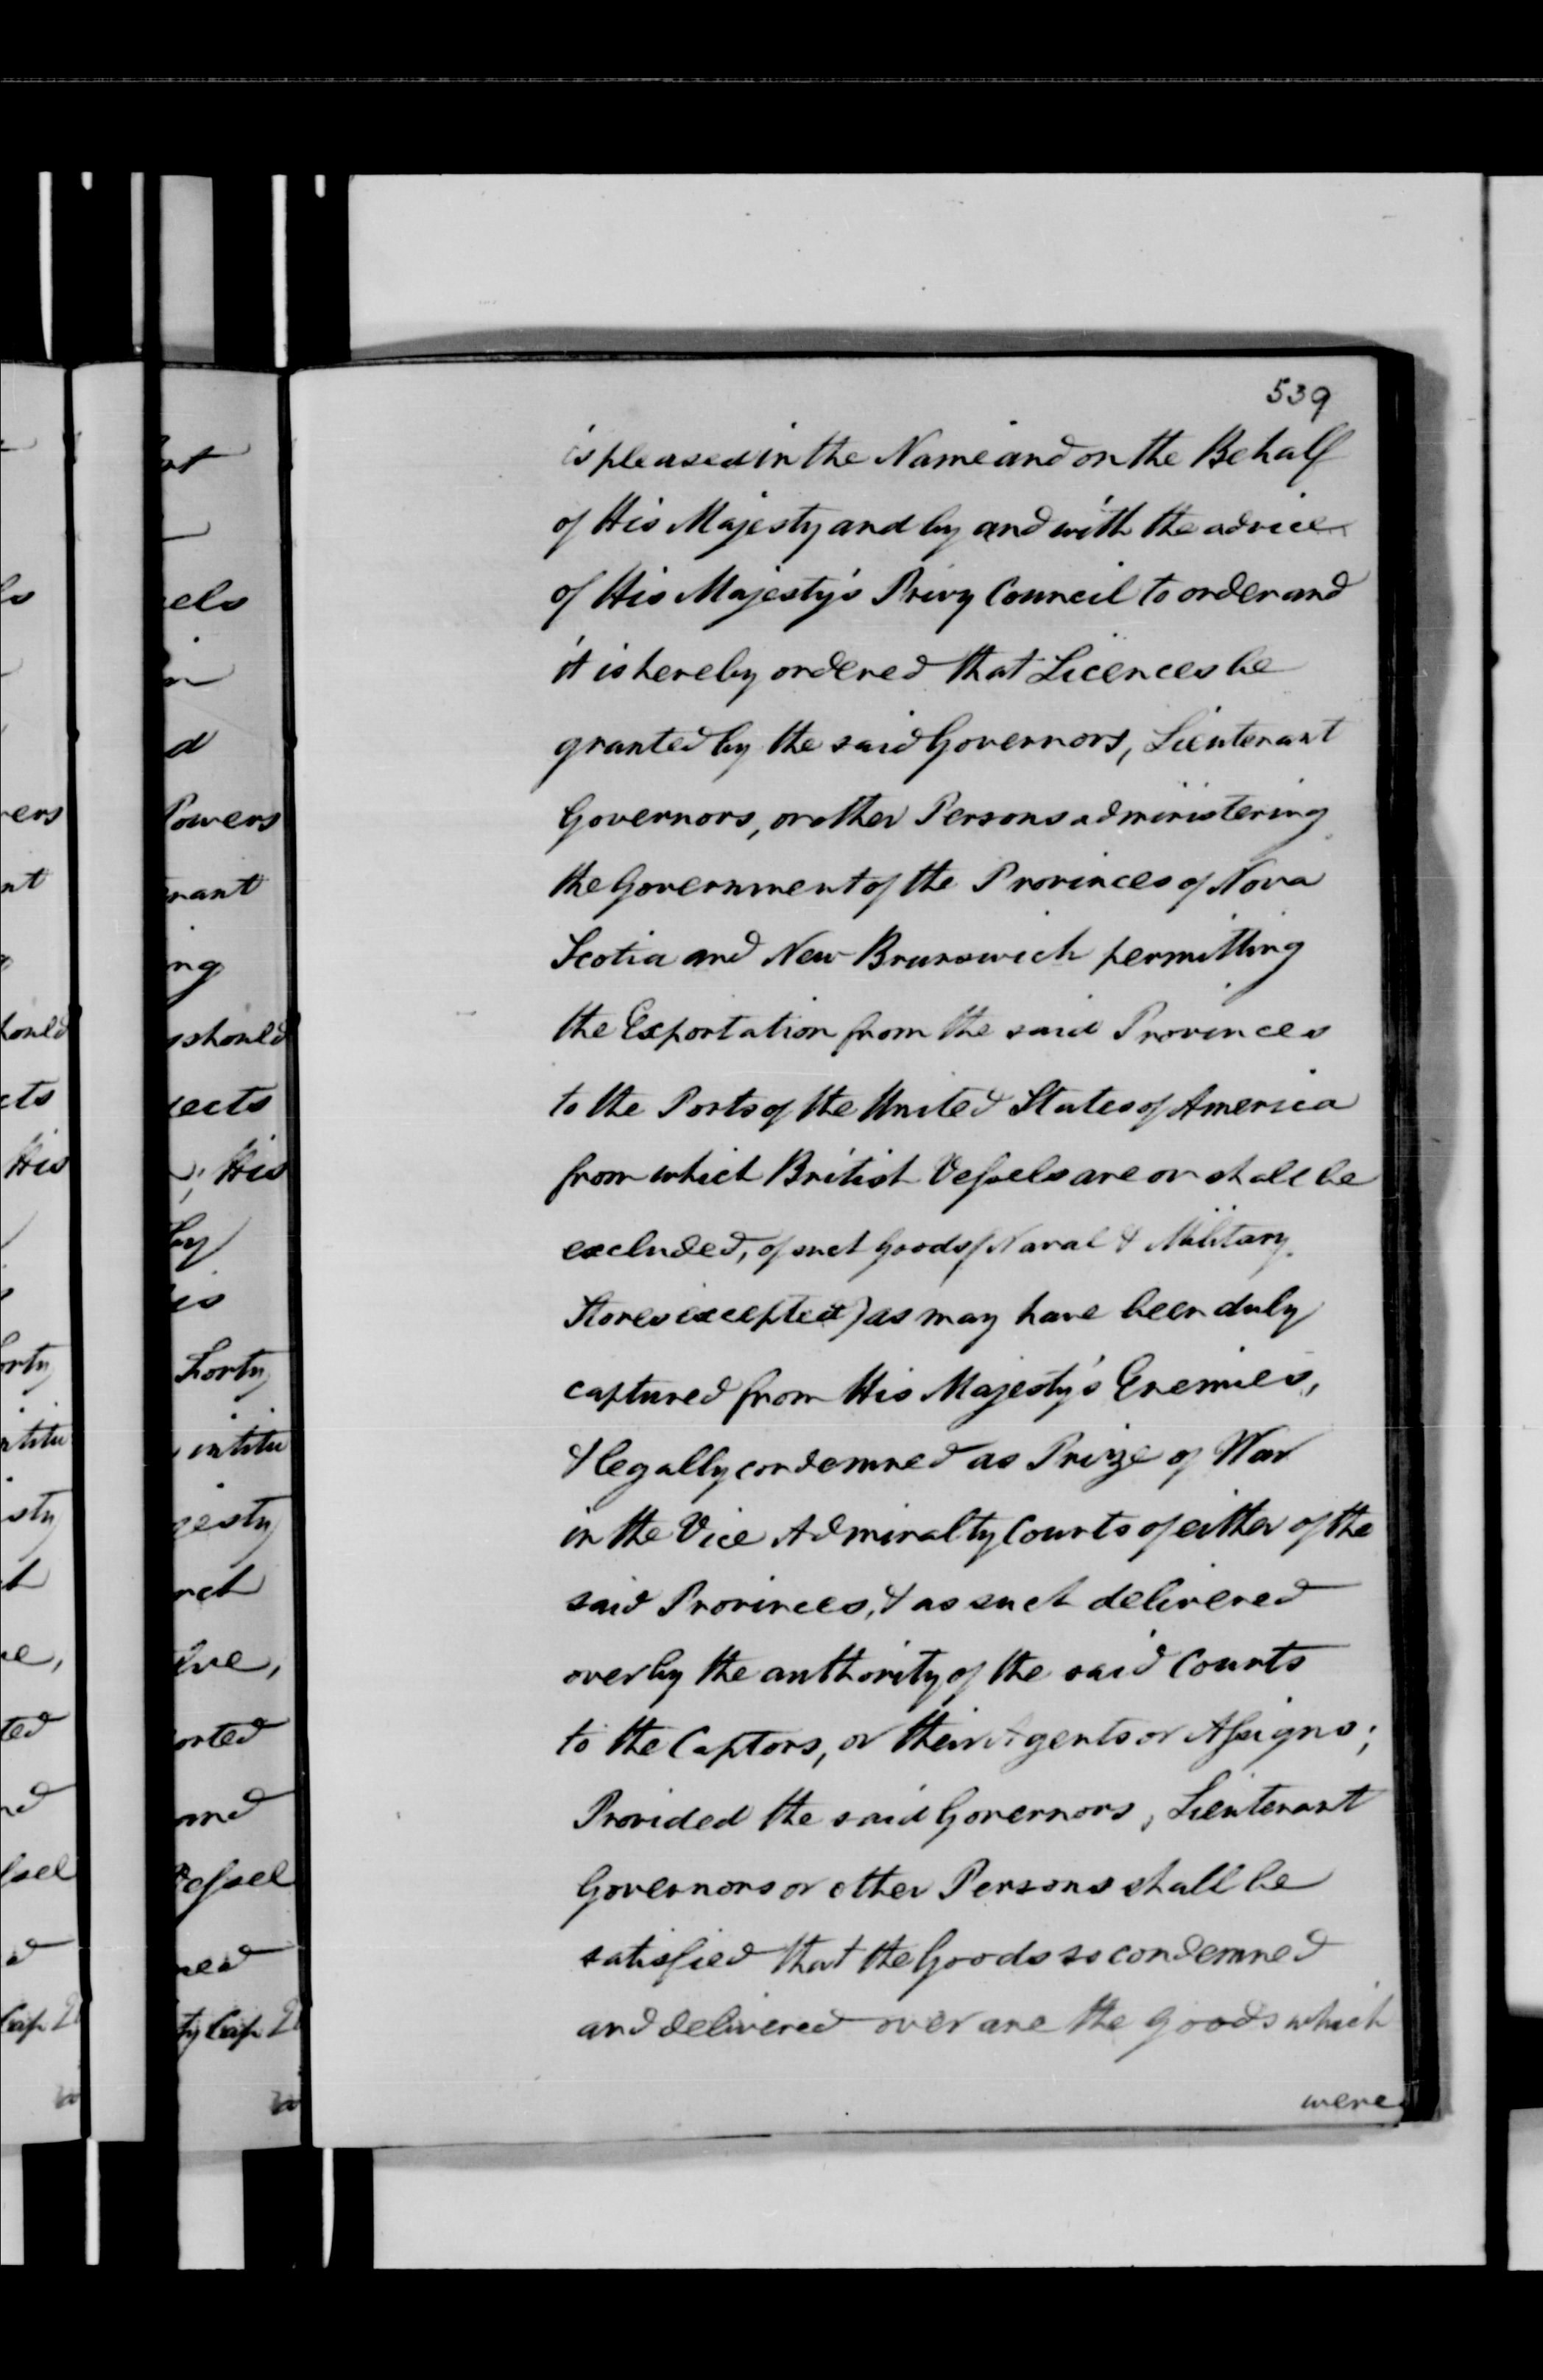 539
is pleased in the Name and on the Behalf
of His Majesty and by and with the advice
of His Majesty's Privy Council to order and
it is hereby ordered that Licences be
granted by the said Governors, Lieutenant
Governors, or other Persons administering
the Government of the Provinces of Nova
Scotia and New Brunswick permitting
the Exportation from the said Provinces
to the Ports of the United States of America
from which British Vessels are or shall be
excluded, of such Goods (Naval & Military
Stores excepted) as may have been duly
captured from His Majesty's Enemies,
& legally condemned as Prize of War
in the Vice Admiralty Courts of either of the
said Provinces, & as such delivered
over by the authority of the said Courts
to the Captors, or their Agents or Assigns;
Provided the said Governors, Lieutenant
Governors or other Persons shall be
satisfied that the Goods so condemned
and delivered over are the goods which
were